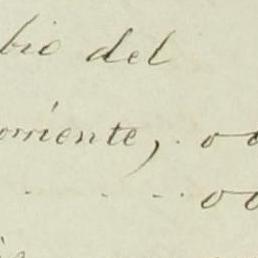 bio del
orriente, . oo
. . . . oo